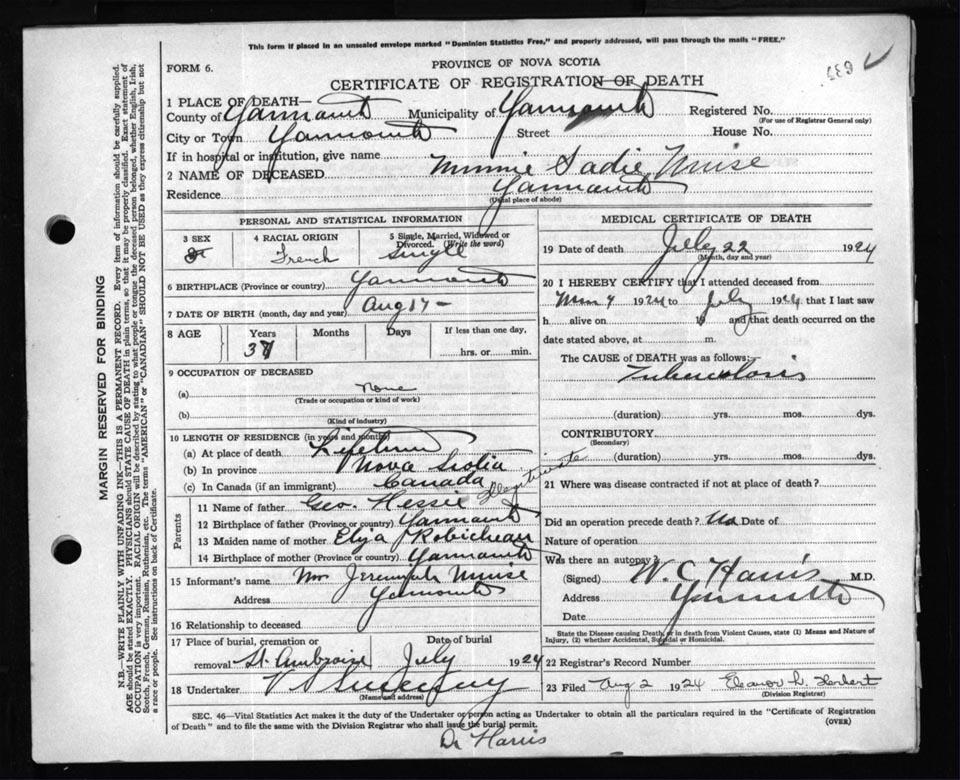 This form if placed in an unsealed envelope marked "Dominion Statistics Free," and properly addressed, will pass through the mails "FREE."
FORM 6.
PROVINCE OF NOVA SCOTIA
639
CERTIFICATE OF REGISTRATION OF DEATH
1 PLACE OF DEATH—
County of Yarmouth Municipality of Yarmouth Registered No.
(For use of Registrar General only)
City or Town Yarmouth Street House No.
If in hospital or institution, give name
2 NAME OF DECEASED Minnie Sadie Muise
Residence Yarmouth
(Usual place of abode)
PERSONAL AND STATISTICAL INFORMATION
3 SEX F 4 RACIAL ORIGIN French 5 Single, Married, Widowed or Divorced. (Write the word) Single
6 BIRTHPLACE (Province or country) Yarmouth
7 DATE OF BIRTH (month, day and year) Aug 17 —
8 AGE Years Months Days If less than one day,
37 hrs. or min.
9 OCCUPATION OF DECEASED
(a) None
(Trade or occupation or kind of work)
(b)
(Kind of industry)
10 LENGTH OF RESIDENCE (in years and months)
(a) At place of death Lifetime
(b) In province Nova Scotia
(c) In Canada (if an immigrant) Canada
Illegitimate
Parents
11 Name of father Geo. Hessie
12 Birthplace of father (Province or country) Yarmouth
13 Maiden name of mother Eliza Robicheau
14 Birthplace of mother (Province or country) Yarmouth
15 Informant's name Mrs Jeremiah Muise
Address Yarmouth
16 Relationship to deceased
17 Place of burial, cremation or Date of burial
removal St. Ambroise July 1924
18 Undertaker V S Sweeney
(Name and address)
MEDICAL CERTIFICATE OF DEATH
19 Date of death July 22 1924
(Month, day and year)
20 I HEREBY CERTIFY that I attended deceased from
1924 to July 1924 that I last saw
h alive on 19 and that death occurred on the
date stated above, at m.
The CAUSE of DEATH was as follows:—
Tuberculosis
(duration) yrs. mos. dys.
CONTRIBUTORY
(Secondary)
(duration) yrs. mos. dys.
21 Where was disease contracted if not at place of death?
Did an operation precede death? No Date of
Nature of operation
Was there an autopsy?
(Signed) W. C. Harris M.D.
Address Yarmouth
Date
State the Disease causing Death, or in death from Violent Causes, state (1) Means and Nature of
Injury, (2) whether Accidental, Suicidal or Homicidal.
22 Registrar's Record Number
23 Filed Aug 2 1924 Eleanor L. Herbert
(Division Registrar)
SEC. 46—Vital Statistics Act makes it the duty of the Undertaker or person acting as Undertaker to obtain all the particulars required in the "Certificate of Registration
of Death" and to file the same with the Division Registrar who shall issue the burial permit.
(OVER)
Dr Harris
MARGIN RESERVED FOR BINDING
N.B.—WRITE PLAINLY WITH UNFADING INK—THIS IS A PERMANENT RECORD. Every item of information should be carefully supplied.
AGE should be stated EXACTLY. PHYSICIANS should STATE CAUSE OF DEATH in plain terms, so that it may be properly classified. Exact statement of
OCCUPATION is very important. RACIAL ORIGIN will be described by stating to what people or tongue the deceased person belonged, whether English, Irish,
Scotch, French, German, Russian, Ruthenian, etc. The terms "AMERICAN" or "CANADIAN" SHOULD NOT BE USED as they express citizenship but not
a race or people. See instructions on back of Certificate.